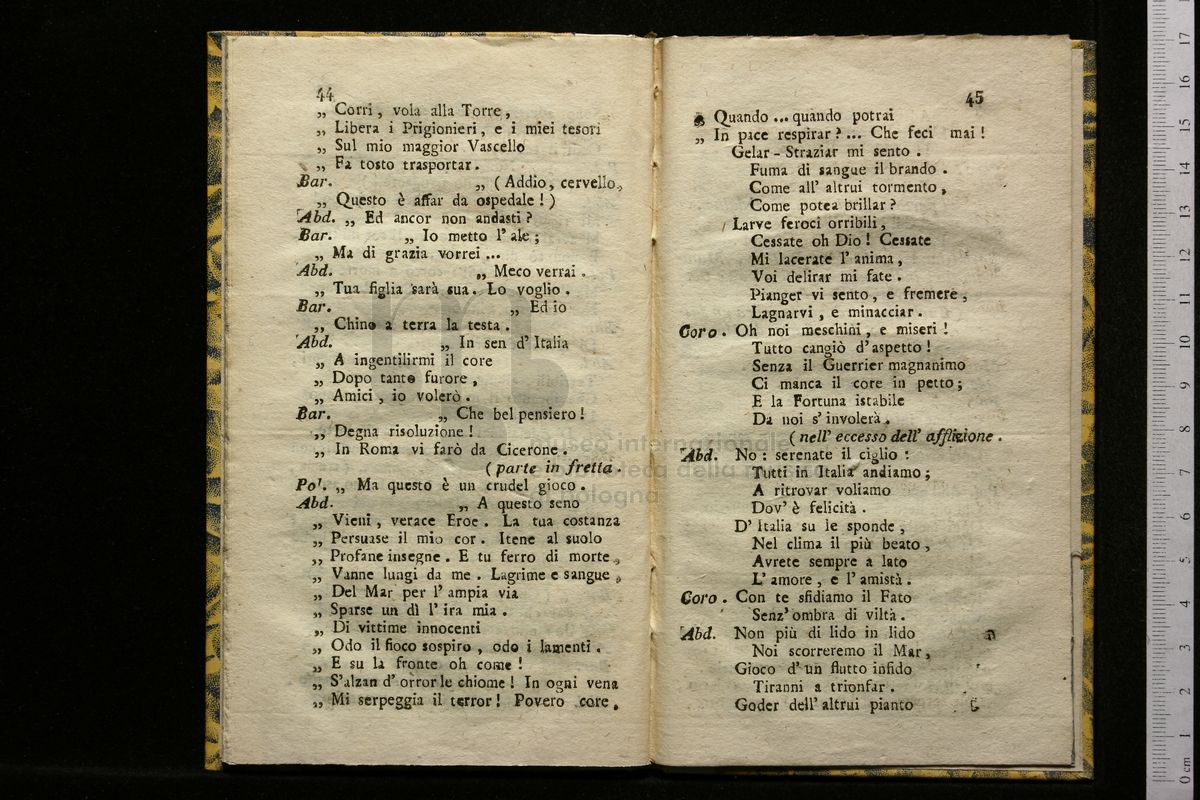 44
„ Corri, vola alla Torre,
„ Libera i Prigionieri, e i miei tesori
„ Sul mio maggior Vascello
„ Fa tosto trasportar.
Bar. „ (Addio, cervello,
„ Questo è affar da ospedale!)
Abd. „ Ed ancor non andasti?
Bar. „ Io metto l'ale;
„ Ma di grazia vorrei ...
Abd. „ Meco verrai.
„ Tua figlia sarà sua. Lo voglio.
Bar. „ Ed io
„ Chino a terra la testa.
Abd. „ In sen d'Italia
„ A ingentilirmi il core
„ Dopo tanto furore,
„ Amici, io volerò.
Bar. „ Che bel pensiero!
„ Degna risoluzione!
„ In Roma vi farò da Cicerone.
(parte in fretta.
Pol. „ Ma questo è un crudel gioco.
Abd. „ A questo seno
„ Vieni, verace Eroe. La tua costanza
„ Persuase il mio cor. Itene al suolo
„ Profane insegne. E tu ferro di morte,
„ Vanne lungi da me. Lagrime e sangue,
„ Del Mar per l'ampia via
„ Sparse un dì l'ira mia.
„ Di vittime innocenti
„ Odo il fioco sospiro, odo i lamenti.
„ E su la fronte oh come!
„ S'alzan d'orror le chiome! In ogni vena
„ Mi serpeggia il terror! Povero core,
45
„ Quando ... quando potrai
„ In pace respirar? ... Che feci mai!
Gelar - Straziar mi sento.
Fuma di sangue il brando.
Come all'altrui tormento,
Come potea brillar?
Larve feroci orribili,
Cessate oh Dio! Cessate
Mi lacerate l'anima,
Voi delirar mi fate.
Pianger vi sento, e fremere,
Lagnarvi, e minacciar.
Coro. Oh noi meschini, e miseri!
Tutto cangiò d'aspetto!
Senza il Guerrier magnanimo
Ci manca il core in petto;
E la Fortuna istabile
Da noi s'involerà.
(nell' eccesso dell' afflizione.
Abd. No: serenate il ciglio:
Tutti in Italia andiamo;
A ritrovar voliamo
Dov'è felicità.
D'Italia su le sponde,
Nel clima il più beato,
Avrete sempre a lato
L'amore, e l'amistà.
Coro. Con te sfidiamo il Fato
Senz'ombra di viltà.
Abd. Non più di lido in lido
Noi scorreremo il Mar,
Gioco d'un flutto infido
Tiranni a trionfar.
Goder dell'altrui pianto